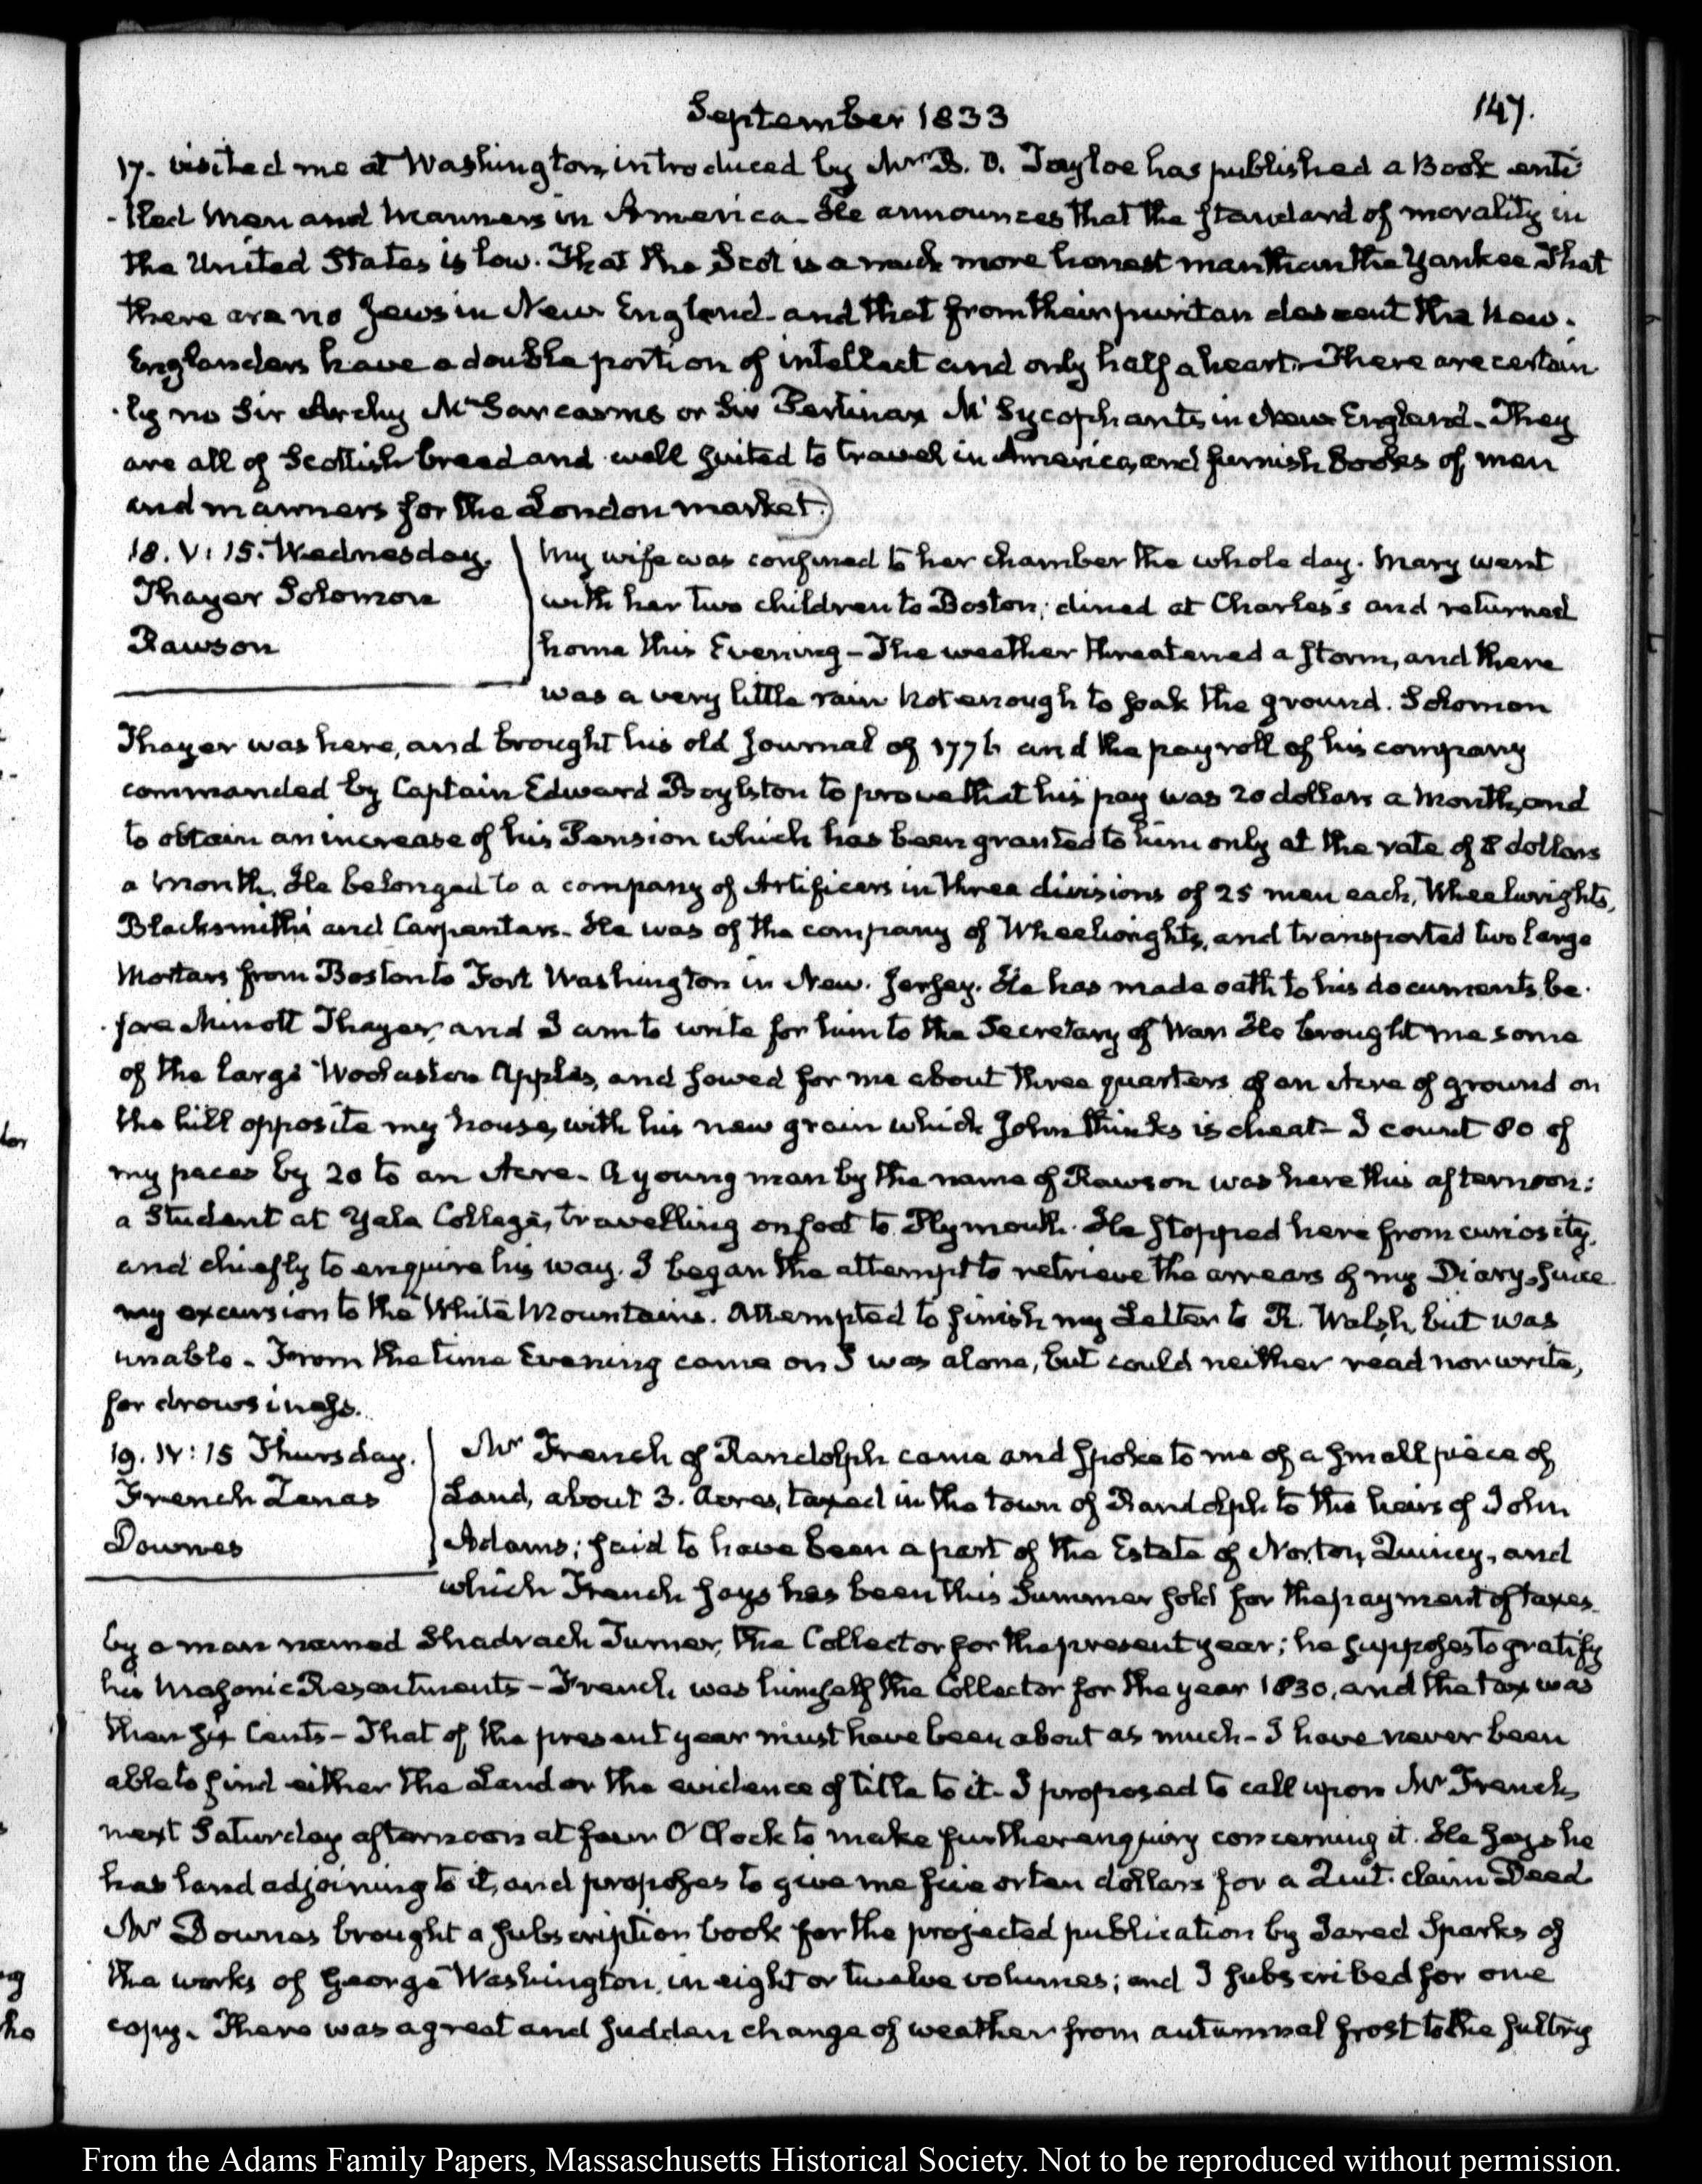 September 1833
147.
17. visited me at Washington, introduced by Mr B. O. Tayloe has published a Book enti
-tled Men and Manners in America. He announces that the standard of morality in
the United States is low. That the Scot is a much more honest man than the Yankee That
there are no Jews in New England and that from their puritan descent the New.
Englanders have a double portion of intellect and only half a heart. There are certain
-ly no Sir Archy McSarcasms or Sir Pertinax McSycophants in New England. They
are all of Scottish breed and well suited to travel in America, and furnish books of men
and manners for the London market.
18. V: 15. Wednesday.
Thayer Solomon
Rawson
My wife was confined to her chamber the whole day. Mary went
with her two children to Boston; dined at Charles's and returned
home this Evening - The weather threatened a storm, and there
was a very little rain not enough to soak the ground. Solomon
Thayer was here, and brought his old Journal of 1776 and the payroll of his company
commanded by Captain Edward Boylston to prove that his pay was 20 dollars a month, and
to obtain an increase of his Pension which has been granted to him only at the rate of 8 dollars
a month. He belonged to a company of Artificers in three divisions of 25 men each, Wheelwrights,
Blacksmiths and Carpenters. He was of the company of Wheelwrights, and transported two large
Mortars from Boston to Fort Washington in New. Jersey. He has made oath to his documents be-
-fore Minott Thayer, and I am to write for him to the Secretary of War He brought me some
of the large Wollaston Apples, and sowed for me about three quarters of an Acre of ground on
the hill opposite my house, with his new grain which John thinks is cheat - I count 80 of
my paces by 20 to an Acre. A young man by the name of Rawson was here this afternoon:
a Student at Yale College, travelling on foot to Plymouth. He stopped here from curiosity,
and chiefly to enquire his way. I began the attempt to retrieve the arrears of my Diary, since
my excursion to the White Mountains. Attempted to finish my Letter to R. Walsh, but was
unable. From the time Evening came on I was alone, but could neither read nor write,
for drowsiness.
19. IV: 15 Thursday.
French Zenas
Downes
Mr French of Randolph came and spoke to me of a small piece of
Land, about 3. Acres, taxed in the town of Randolph to the heirs of John
Adams; said to have been a part of the Estate of Norton Quincy, and
which French says has been this Summer sold for the payment of taxes
by a man named Shadrach Turner, the Collector for the present year; he supposes to gratify
his Masonic Resentments - French was himself the Collector for the year 1830, and the tax was
then six Cents - That of the present year must have been about as much - I have never been
able to find either the Land or the evidence of title to it. I proposed to call upon Mr French
next Saturday afternoon at four O'Clock to make further enquiry concerning it. He says he
has land adjoining to it, and proposes to give me five or ten dollars for a Quit. claim Deed
Mr Downes brought a subscription book for the projected publication by Jared Sparks of
the works of George Washington, in eight or twelve volumes; and I subscribed for one
copy. There was a great and sudden change of weather from autumnal frost to the sultry
From the Adams Family Papers, Massaschusetts Historical Society. Not to be reproduced without permission.